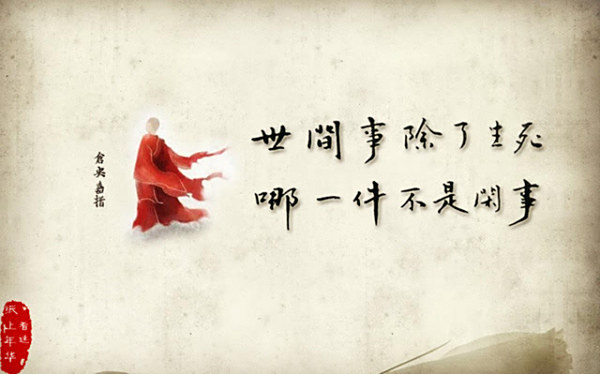 世間事除了生死
哪一件不是閑事
倉央嘉措
紙上年华